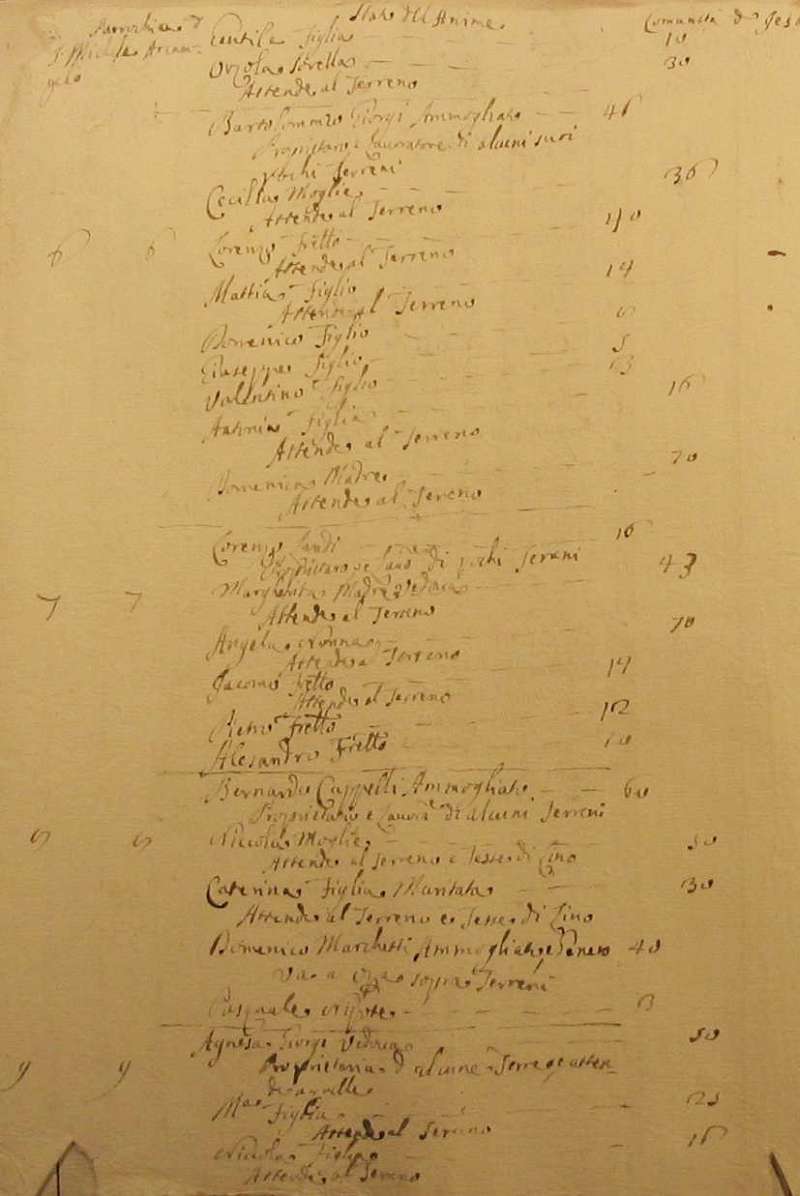 Parrochia di Stato dell'Anime. Comunità di Jesi
S. Michele Arcan-
gelo
Gentile figlia 10
Orzola Sorella 30
Attende al Terreno
Bartolommeo Giorgi Ammogliato 46
Proprietario e Lavoratore di alcuni suoi
pochi Terreni
Cecilia Moglie 36
Attende al Terreno
6 6 Lorenzo Fretto
Attende al Terreno
Mattia figlio 14
Attende al Terreno
Domenico figlio
Giuseppe figlio 5
Valentino figlio
Antonia figlia 16
Attende al Terreno
Domenica Madre 70
Attende al Tereno
Lorenzo 16
di pochi Tereni
Margherita Madre Vedova 43
7 7 Attende al Terreno
Angela Nonna 70
Attende a Terreno
Giacomo Fretto 14
Attende al Terreno
Pietro Fretto 12
Alesandro Fretto 10
Bernardo Cappelli Ammogliato 60
Proprietario e Lavor.e di alcuni Terreni
Niccola Moglie 50
Attende al Terreno e Tesse di Lino
Caterina figlia Maritata 30
Attende al Terreno e Tesse di Lino
Domenico Marchetti Ammogliato e Genero 40
Va a opra sopra Terreni
Pasquale Nipote
Agnesa Giorgi Vedova 50
9 9 Proprietaria d'alcune Terre e atten-
de a quelle
M.a figlia 25
Attende al Tereno
Niccola figlia 16
Attende al Tereno